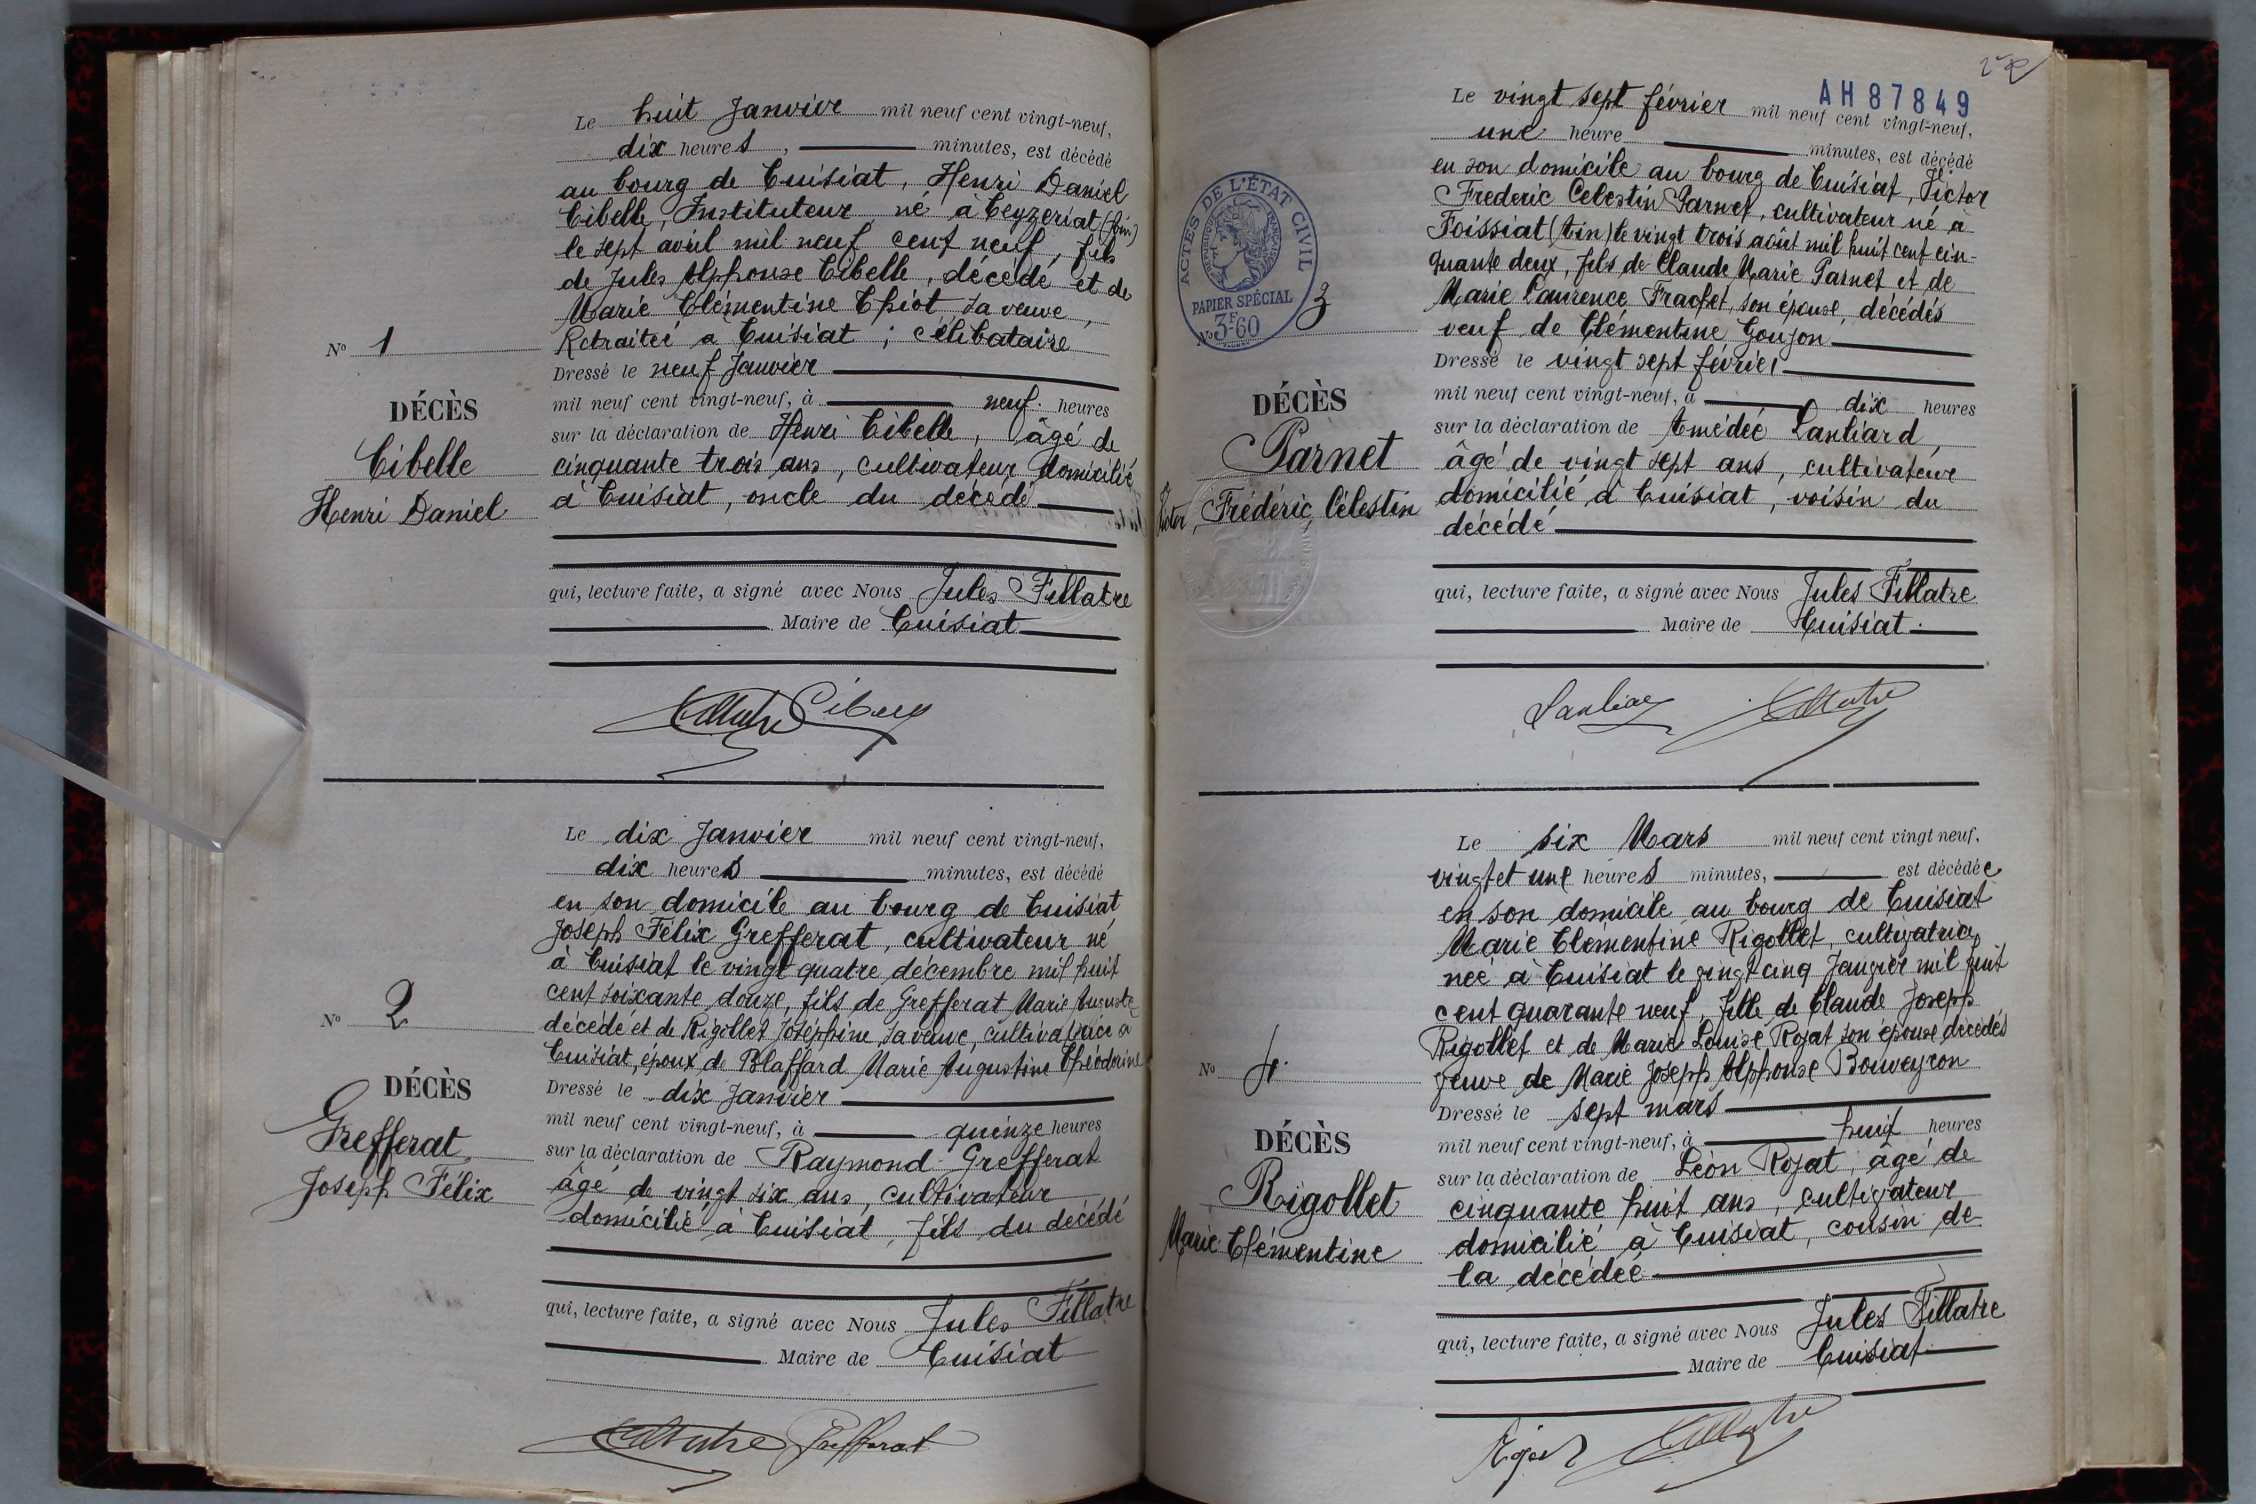 Le huit Janvier mil neuf cent vingt-neuf,
dix heures, minutes, est décédé
au bourg de Cuisiat, Henri Daniel
Cibelle, Instituteur né à Ceyzeriat (Ain)
le sept avril mil neuf cent neuf, fils
de Jules Alphonse Cibelle, décédé et de
Marie Clémentine Thiot sa veuve,
Retraitée à Cuisiat ; célibataire
Nº 1
Dressé le neuf Janvier
mil neuf cent vingt-neuf, à neuf heures
DÉCÈS
sur la déclaration de Henri Cibelle, âgé de
Cibelle
cinquante trois ans, cultivateur domicilié
Henri Daniel
à Cuisiat, oncle du décédé
qui, lecture faite, a signé avec Nous Jules Fillatre
Maire de Cuisiat
Fillatre Cibelle
Le dix Janvier mil neuf cent vingt-neuf,
dix heures minutes, est décédé
en son domicile au bourg de Cuisiat
Joseph Félix Grefferat, cultivateur né
à Cuisiat le vingt quatre décembre mil huit
cent soixante douze, fils de Grefferat Marie Auguste
Nº 2
décédé et de Rigollet Joséphine, sa veuve, cultivatrice à
Cuisiat, époux de Blaffard Marie Augustine Théodorine
DÉCÈS
Dressé le dix Janvier
mil neuf cent vingt-neuf, à quinze heures
Grefferat
sur la déclaration de Raymond Grefferat
Joseph Félix
âgé de vingt six ans, cultivateur
domicilié à Cuisiat, fils du décédé
qui, lecture faite, a signé avec Nous Jules Fillatre
Maire de Cuisiat
Fillatre Grefferat
AH 87849
Le vingt sept février mil neuf cent vingt-neuf,
une heure minutes, est décédé
en son domicile au bourg de Cuisiat, Victor
Frederic Celestin Parnet, cultivateur né à
Foissiat (Ain) le vingt trois août mil huit cent cin-
quante deux, fils de Claude Marie Parnet et de
Marie Laurence Frachet, son épouse, décédés
veuf de Clémentine Goujon
ACTES DE L'ÉTAT CIVIL
RÉPUBLIQUE FRANÇAISE
PAPIER SPÉCIAL
3F60
Nº 3
Dressé le vingt sept février
mil neuf cent vingt-neuf, à dix heures
DÉCÈS
sur la déclaration de Amédée Lanliard,
Parnet
âgé de vingt sept ans, cultivateur
Victor, Frédéric, Célestin
domicilié à Cuisiat, voisin du
décédé
qui, lecture faite, a signé avec Nous Jules Fillatre
Maire de Cuisiat.
Fillatre
Le six Mars mil neuf cent vingt neuf,
vingt et une heures minutes, est décédée
en son domicile au bourg de Cuisiat
Marie Clémentine Rigollet, cultivatrice
née à Cuisiat le vingt cinq Janvier mil huit
cent quarante neuf, fille de Claude Joseph
Rigollet et de Marie Louise Rojat son épouse décédés
Nº 4.
veuve de Marie Joseph Alphonse Bouveyron
Dressé le sept mars
DÉCÈS
mil neuf cent vingt-neuf, à huit heures
sur la déclaration de Léon Rojat, âgé de
Rigollet
cinquante huit ans, cultivateur
Marie Clémentine
domicilié à Cuisiat, cousin de
la décédée
qui, lecture faite, a signé avec Nous Jules Fillatre
Maire de Cuisiat
Rojat Fillatre